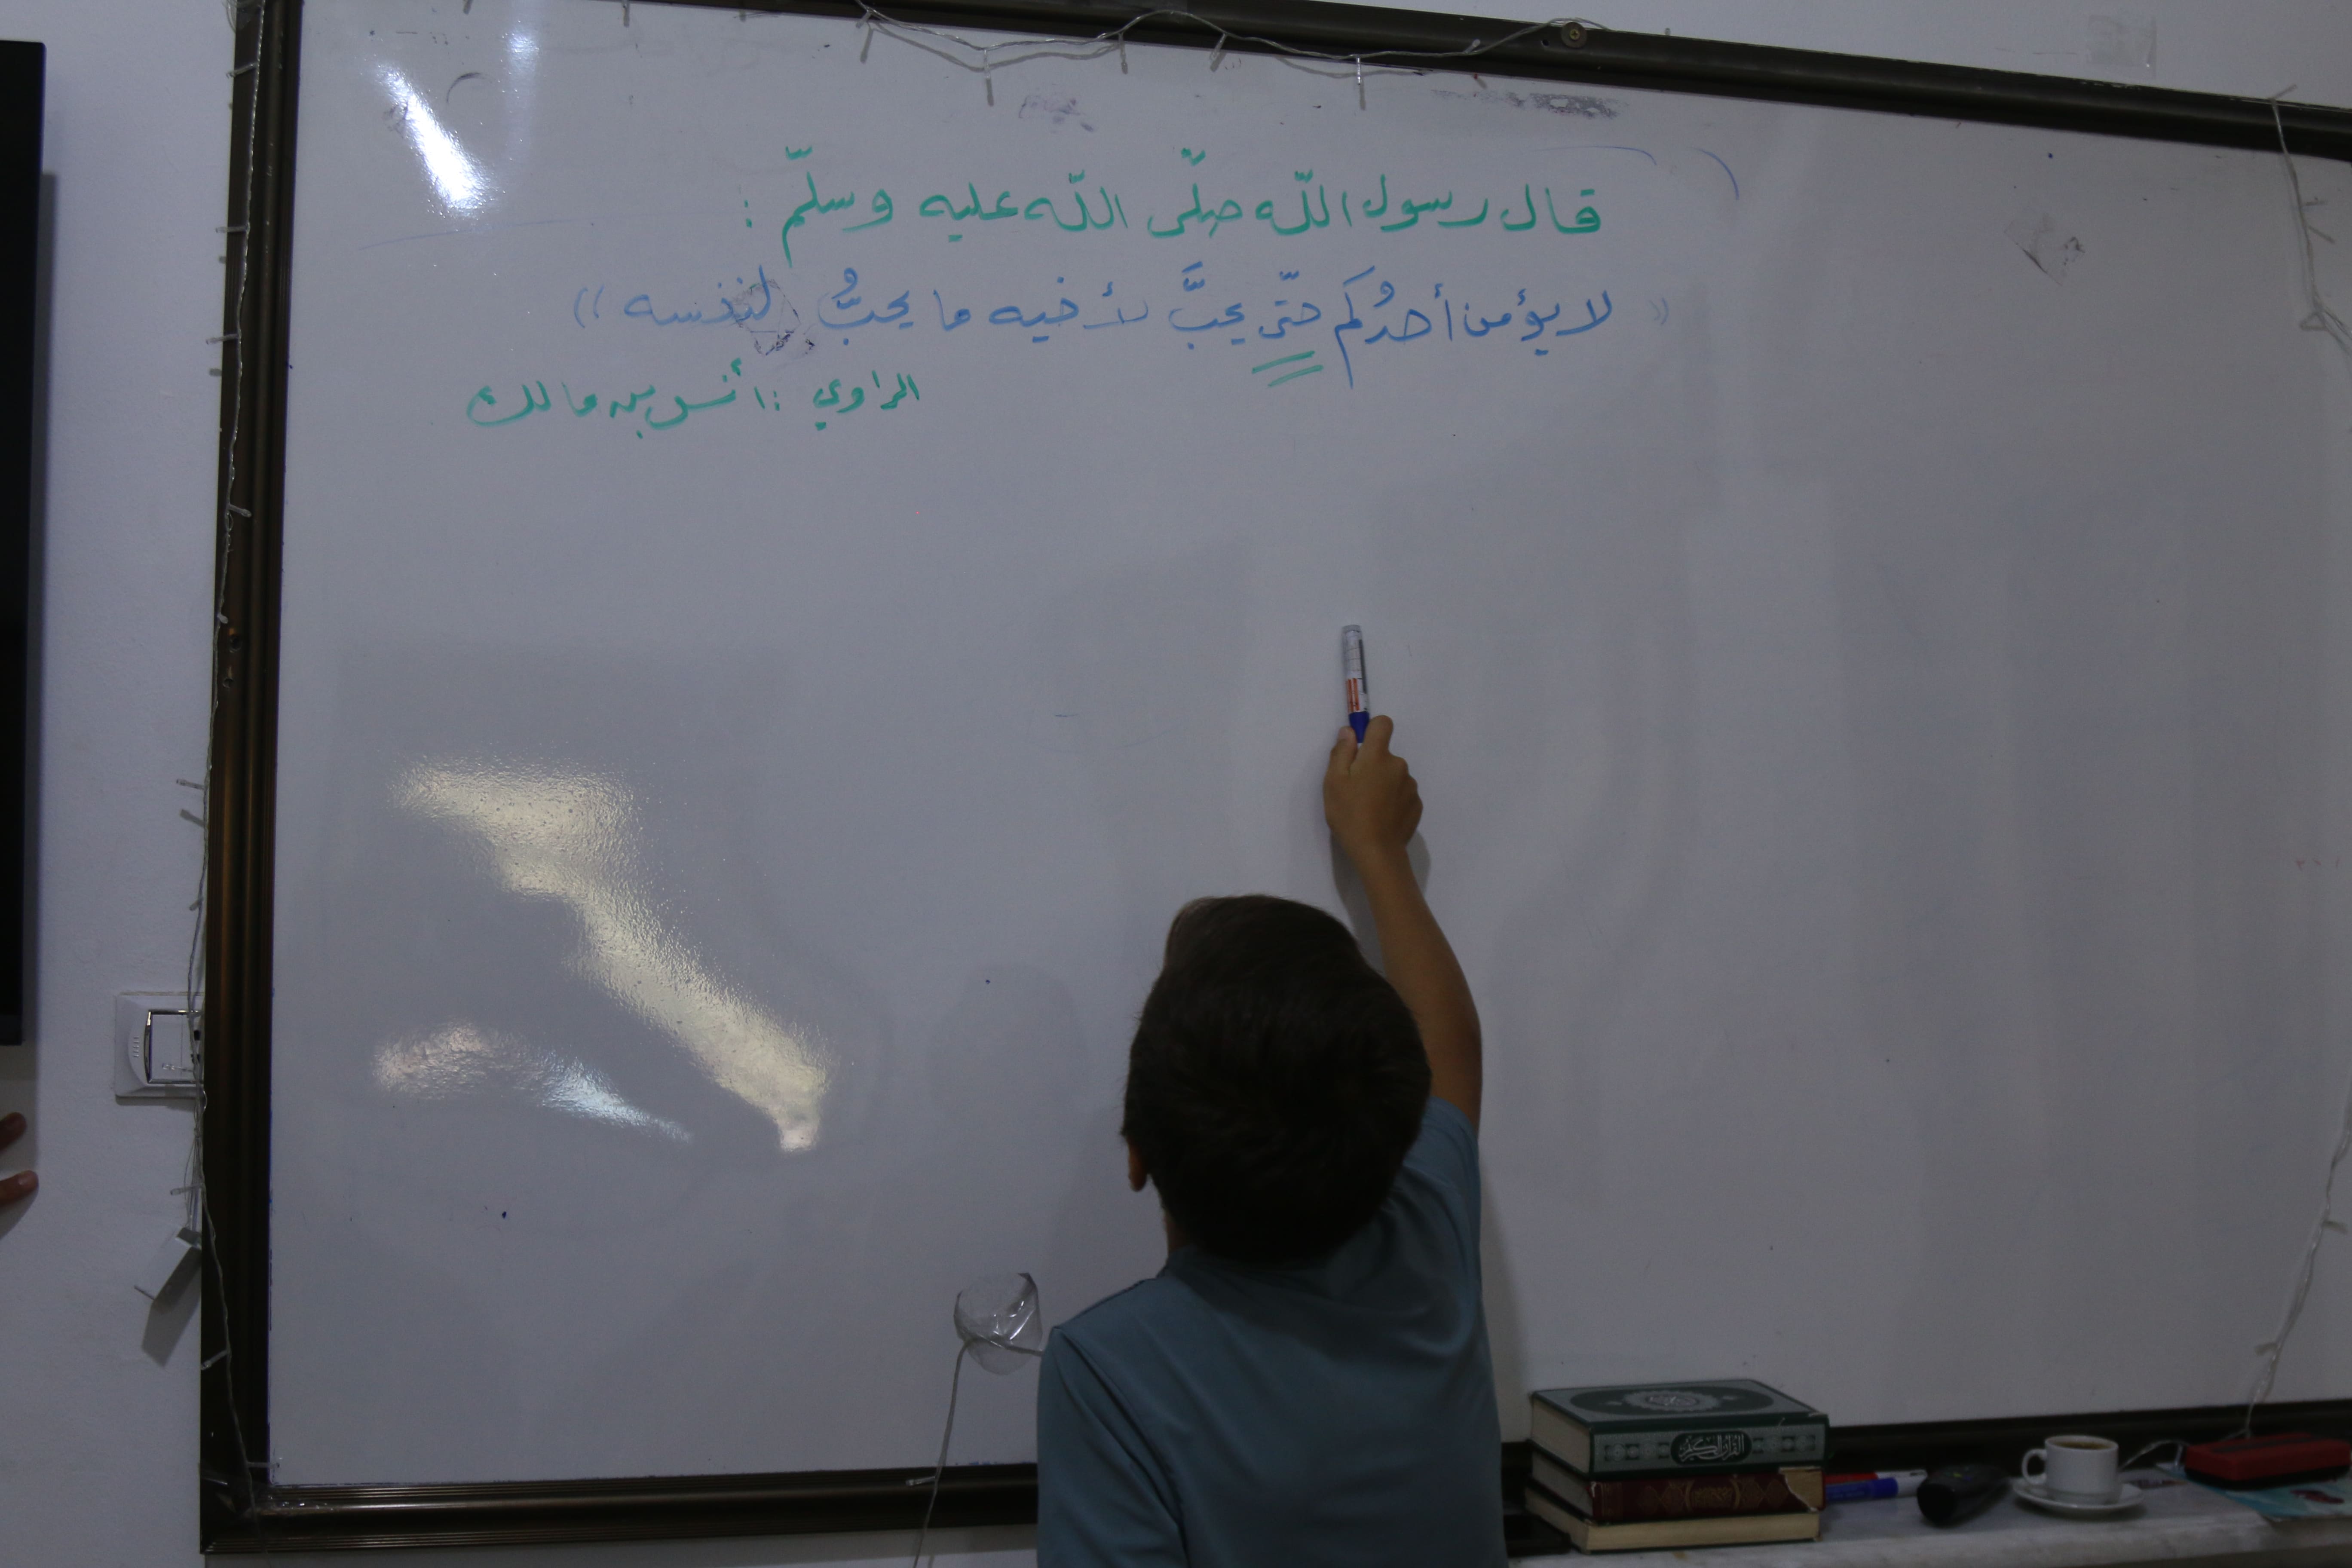 قال رسول اللّه صلّى اللّه عليه وسلّم :
« لا يؤمن أحدُكم حتّى يحبَّ لأخيه ما يحبُّ لنفسه »
الراوي : أنس بن مالك
القرآن الكريم